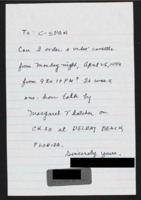 To: C-SPAN
Can I order a video cassette
from Monday night, April 25, 1994
from 9 to 10 PM? It was a
one-hour talk by
Margaret Thatcher on
at DELRAY BEACH,
FLORIDA.
Sincerely yours,